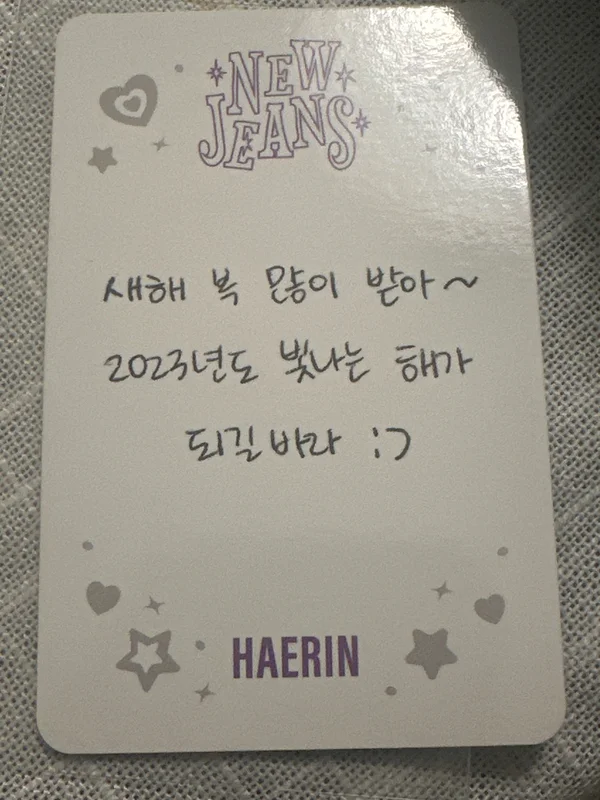 NEW
JEANS
새해 복 많이 받아~
2023년도 빛나는 해가
되길 바라 :)
HAERIN